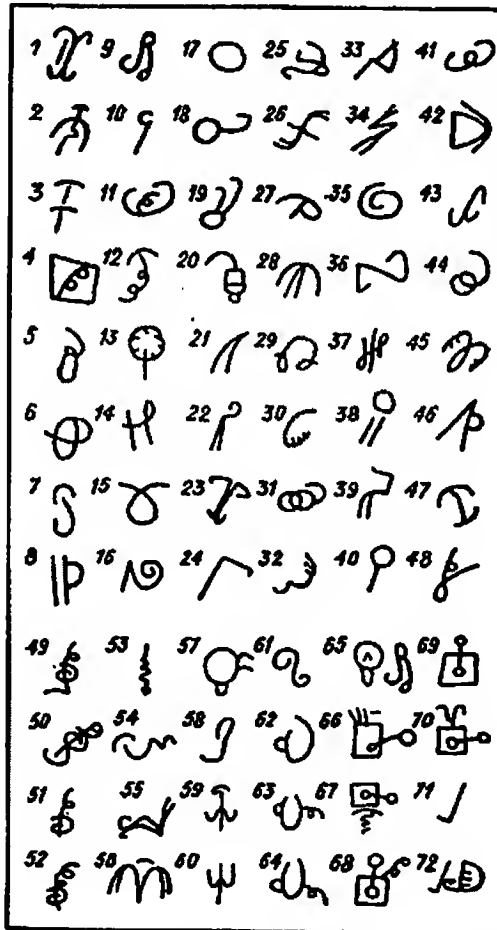 1 9 17 25 33 41
2 10 18 26 34 42
3 11 19 27 35 43
4 12 20 28 36 44
5 13 21 29 37 45
6 14 22 30 38 46
7 15 23 31 39 47
8 16 24 32 40 48
49 53 57 61 65 69
50 54 58 62 66 70
51 55 59 63 67 71
52 56 60 64 68 72